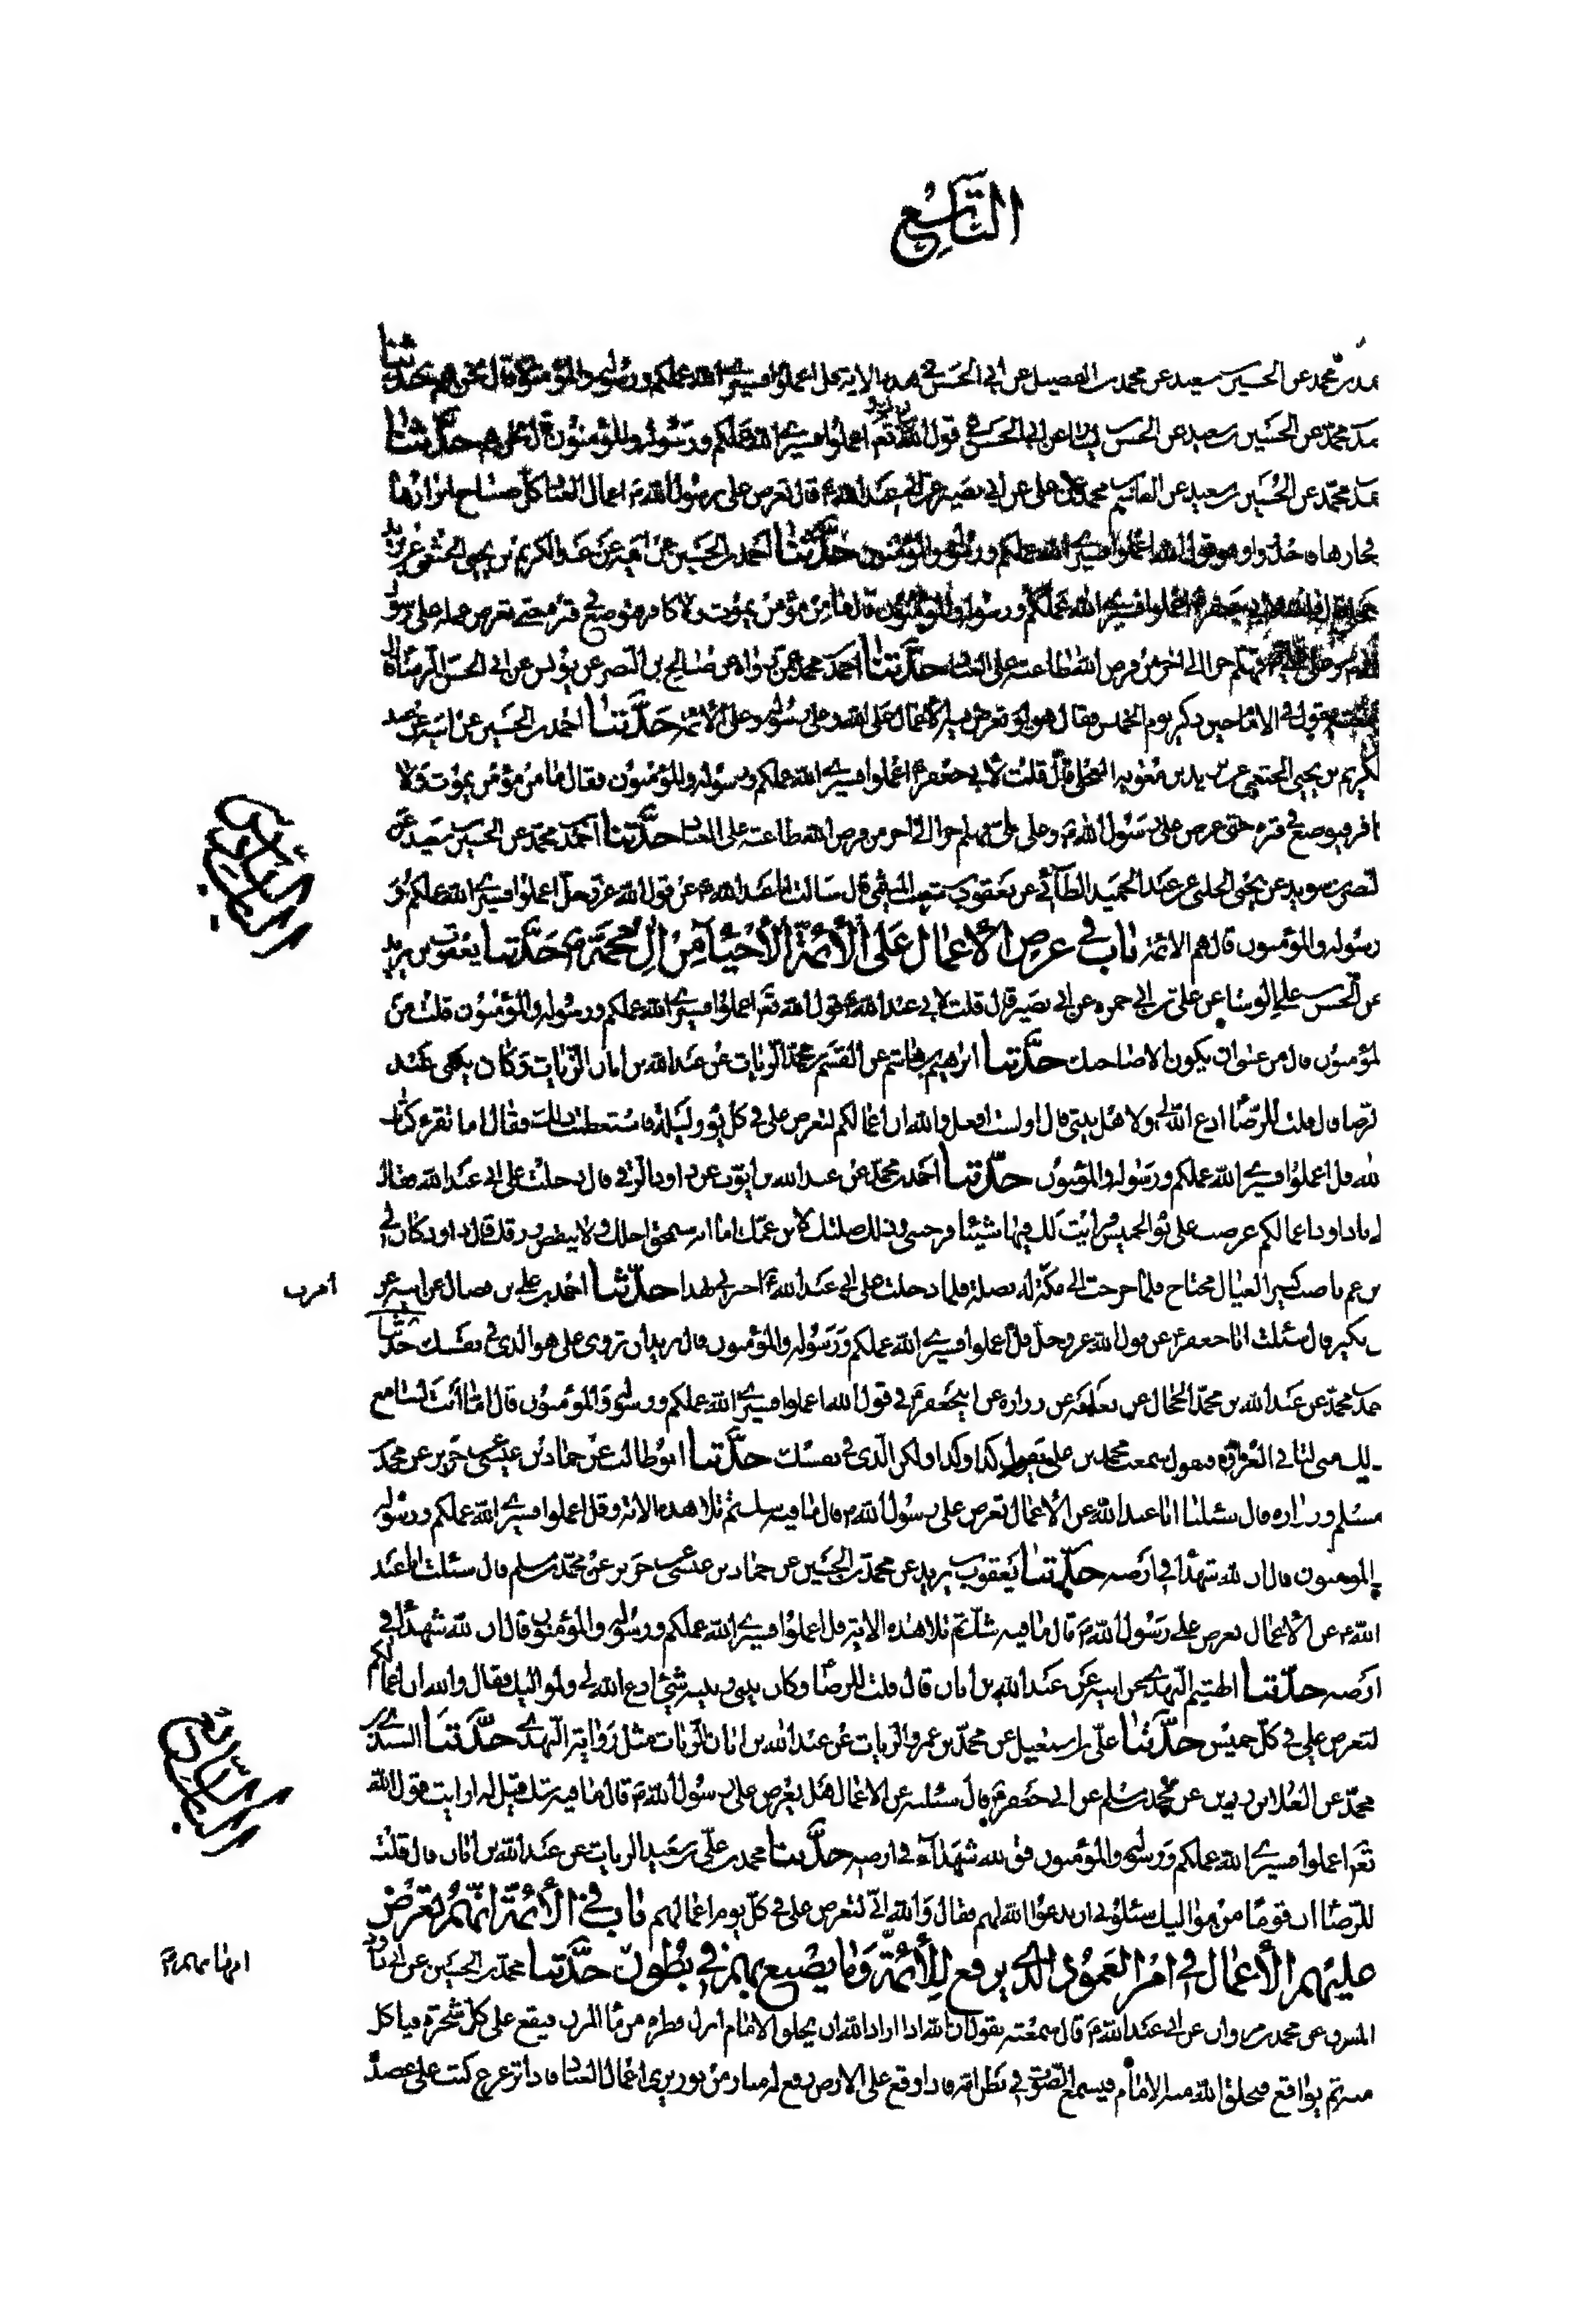 التاسع
محمد عن الحسين سعيد عن محمد الفضيل عن ابى الحسن فى هذه الاية قل اعملوا فسيرى الله عملكم ورسوله والمؤمنون قال نحن هم حدثنا
محمد عن الحسين بن سعيد عن الحسن عن ابى الحسن فى قول الله تع اعملوا فسيرى الله عملكم ورسوله والمؤمنون قال نحن هم حدثنا
محمد عن الحسين بن سعيد عن القاسم محمد عن على عن ابى بصير عن ابى عبد الله ع قال تعرض على رسول الله ص اعمال العباد كل صباح ابرارها
فجارها فاحذروا وهو قول الله اعملوا فسيرى الله عملكم ورسوله والمؤمنون حدثنا احمد بن الحسين عن ابيه عن عبد الكريم بن يحيى الخثعمى عن بريد
اعملوا فسيرى الله عملكم ورسوله والمؤمنون قال ما من مؤمن يموت ولا كافر فتوضع فى قبره حتى تعرض عمله على رسول
فهلم جرا الى اخر من فرض الله طاعته على العباد حدثنا احمد محمد عمن رواه عن صالح بن النضر عن يونس عن ابى الحسن الرضا قال
يقول فى الايام حين ذكر يوم الخميس فقال هو يوم تعرض فيه الاعمال على الله وعلى رسوله وعلى الائمة حدثنا احمد بن الحسين عن ابيه عن عبد
لكريم بن يحيى الخثعمى عن بريد بن معوية العجلى قال قلت لابى جعفر ع اعملوا فسيرى الله عملكم ورسوله والمؤمنون فقال ما من مؤمن يموت ولا
افر فيوضع فى قبره حتى عرض على رسول الله ص وعلى على فهلم جرا الى اخر من فرض الله طاعته على العباد حدثنا احمد محمد عن الحسين سعيد عن
لنضر بن سويد عن يحيى الحلبى عن عبد الحميد الطائى عن يعقوب شعيب الميثمى قال سالت ابا عبد الله ع عن قول الله عز وجل اعملوا فسيرى الله عملكم و
رسوله والمؤمنون قال هم الائمة باب فى عرض الاعمال على الأئمة الأحياء من ال محمد ص حدثنا يعقوب بن يزيد
عن الحسن على الوشا عن على بن ابى حمزه عن ابى بصير قال قلت لابى عبد الله ع قول الله تع اعملوا فسيرى الله عملكم ورسوله والمؤمنون قلت من
لمؤمنون قال من عسى ان يكون الا صاحبك حدثنا ابراهيم بن هاشم عن القسم محمد الزيات عن عبد الله بن ابان الزيات وكان يكنى عبد
لرضا قال قلت للرضا ادع الله لى ولاهل بيتى قال اولست افعل والله ان اعمالكم لتعرض على فى كل يوم وليلة فاستعظمت ذلك فقال اما تقرء كتاب
لله قل اعملوا فسيرى الله عملكم ورسوله والمؤمنون حدثنا احمد بن محمد عن عبد الله بن ايوب عن داود الرقى قال دخلت على ابى عبد الله فقال
لى يا داود اعمالكم عرضت على يوم الخميس فرايت لك فيها شيئا فرحنى وذلك صلتك لابن عمك اما انه سيمحق اجله ولا ينقص رزقك قال داود وكان لى
بن عم ناصب كثير العيال محتاج فلما خرجت الى مكة امرت له بصلة فلما دخلت على ابى عبد الله ع اخبرنى بهذا حدثنا احمد بن على بن فضال عن ابيه عن
امرت
بكير قال سئلت ابا جعفر ع عن قول الله عز وجل قل اعملوا فسيرى الله عملكم ورسوله والمؤمنون قال تريدان تروى على هو الذى فى نفسك حدثنا
حمد محمد عن عبد الله بن محمد الحجال عن ثعلبة عن زراره عن ابيجعفر ع فى قول الله اعملوا فسيرى الله عملكم ورسوله والمؤمنون قال اما انت لسامع
كذا وكذا ولكن الذى فى نفسك حدثنا ابو طالب عن حماد بن عيسى حريز عن محمد
مسلم وزراره قال سئلنا ابا عبد الله عن الاعمال تعرض على رسول الله ص قال ما فيه شك ثم تلا هذه الاية وقل اعملوا فسيرى الله عملكم ورسوله
والمؤمنون قال ان لله شهداء فى ارضه حدثنا يعقوب يزيد عن محمد بن الحسين عن حماد بن عيسى حريز عن محمد بن مسلم قال سئلت ابا عبد
الله ع عن الاعمال تعرض على رسول الله ص قال ما فيه شك ثم تلا هذه الاية قل اعملوا فسيرى الله عملكم ورسوله والمؤمنون قال ان لله شهداء فى
ارضه حدثنا الهيثم النهدى عن ابيه عن عبد الله بن ابان قال قلت للرضا ع وكان بينى وبينه شئ ادع الله لى ولمواليك فقال والله ان اعمالكم
لتعرض على فى كل خميس حدثنا على بن اسمعيل عن محمد بن عمرو الزيات عن عبد الله بن ابان الزيات مثل رواية النهدى حدثنا السندى بن
محمد عن العلا بن رزين عن محمد مسلم عن ابى جعفر ع قال سئلته عن الاعمال هل يعرض على رسول الله ص قال ما فيه شك قيل له ارايت قول الله
تع اعملوا فسيرى الله عملكم ورسوله والمؤمنون قال لله شهداء فى ارضه حدثنا محمد بن على بن سعيد الزيات عن عبد الله بن ابان قال قلت
للرضا ان قوما من مواليك سئلونى ان تدعو الله لهم فقال والله انى لتعرض على فى كل يوم اعمالهم باب فى الأئمة انهم تعرض
عليهم الأعمال فى امر العمود الذى يرفع للأئمة وما يصنع بهم فى بطون حدثنا محمد بن الحسين عن ابى داود
امهاتهم
المسرق عن محمد مروان عن ابى عبد الله ع قال سمعته يقول ان الله اذا اراد الله ان يخلق الامام انزل قطره من ماء المزن فيقع على كل شجرة فياكل
منه ثم يواقع فيخلق الله منه الامام فيسمع الصوت فى بطن امه فاذا وقع على الارض رفع له منار من نور يرى اعمال العباد فاذا ترعرع كتب على عضده